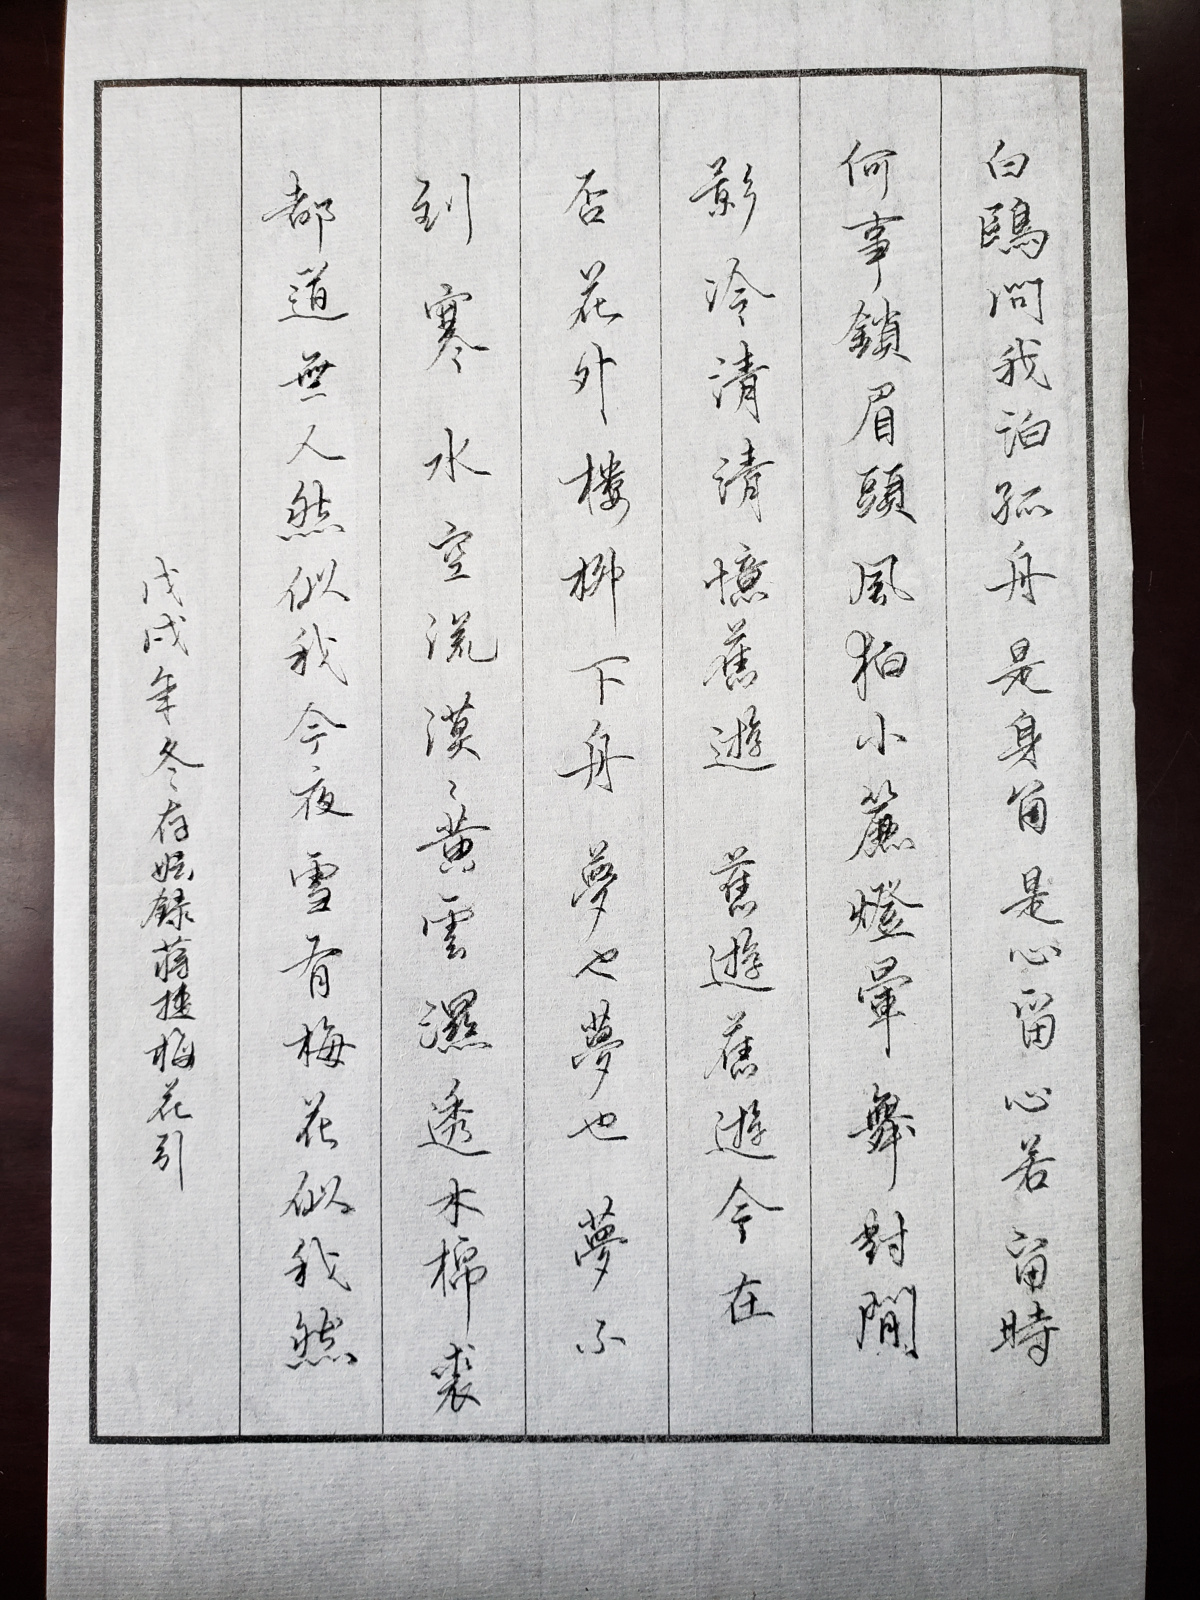 白鷗問我泊孤舟是身留是心留心若留時
何事鎖眉頭風拍小簾燈暈舞對閒
影冷清清憶舊遊舊遊舊遊今在
否花外樓柳下舟夢也夢也夢不
到寒水空流漠〻黃雲濕透木棉裘
都道無人愁似我今夜雪有梅花似我愁
戊戌年冬存㛃錄蔣捷梅花引